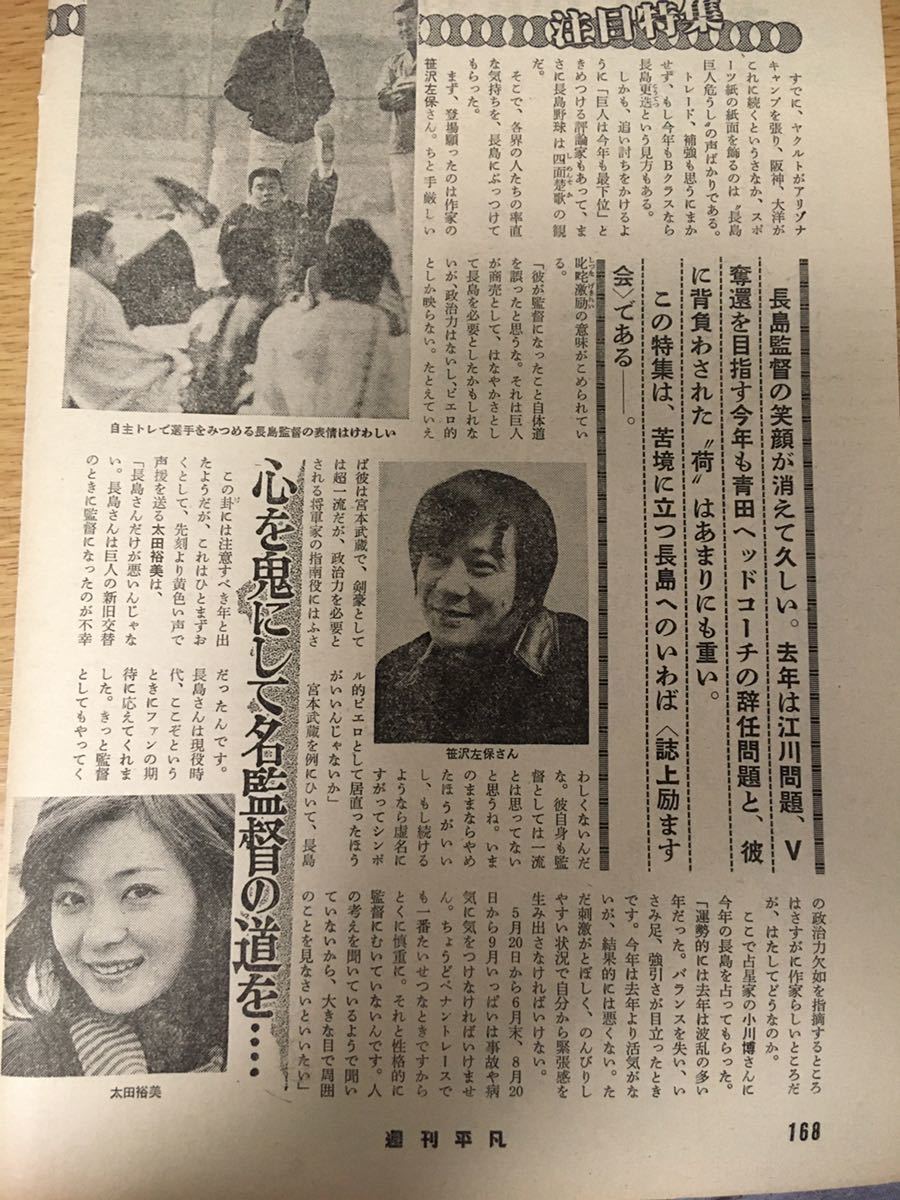 注目特集
長島監督の笑顔が消えて久しい。去年は江川問題、V
奪還を目指す今年も青田ヘッドコーチの辞任問題と、彼
に背負わされた〝荷〟はあまりにも重い。
この特集は、苦境に立つ長島へのいわば〈誌上励ます
会〉である――。
すでに、ヤクルトがアリゾナ
キャンプを張り、阪神、大洋が
これに続くというさなか、スポ
ーツ紙の紙面を飾るのは〝長島
巨人危うし〟の声ばかりである。
トレード、補強も思うにまか
せず、もし今年もBクラスなら
長島更迭という見方もある。
しかも、追い討ちをかけるよ
うに「巨人は今年も最下位」と
きめつける評論家もあって、ま
さに長島野球は四面楚歌の観
だ。
そこで、各界の人たちの率直
な気持ちを、長島にぶっつけて
もらった。
まず、登場願ったのは作家の
笹沢左保さん。ちと手厳しい
叱咤激励の意味がこめられてい
る。
「彼が監督になったこと自体道
を誤ったと思うな。それは巨人
が商売として、はなやかさとし
て長島を必要としたかもしれな
いが、政治力はないし、ピエロ的
としか映らない。たとえていえ
ば彼は宮本武蔵で、剣豪として
は超一流だが、政治力を必要と
される将軍家の指南役にはふさ
わしくないんだ
な。彼自身も監
督としては一流
とは思ってない
と思うね。いま
のままならやめ
たほうがいい
し、もし続ける
ようなら虚名に
すがってシンボ
ル的ピエロとして居直ったほう
がいいんじゃないか」
宮本武蔵を例にひいて、長島
の政治力欠如を指摘するところ
はさすがに作家らしいところだ
が、はたしてどうなのか。
ここで占星家の小川博さんに
今年の長島を占ってもらった。
「運勢的には去年は波乱の多い
年だった。バランスを失い、い
さみ足、強引さが目立ったとき
です。今年は去年より活気がな
いが、結果的には悪くない。た
だ刺激がとぼしく、のんびりし
やすい状況で自分から緊張感を
生み出さなければいけない。
5月20日から6月末、8月20
日から9月いっぱいは事故や病
気に気をつけなければいけませ
ん。ちょうどペナントレースで
も一番たいせつなときですから
とくに慎重に。それと性格的に
監督にむいていないんです。人
の考えを聞いているようで聞い
ていないから、大きな目で周囲
のことを見なさいといいたい」
心を鬼にして名監督の道を‥‥
この卦には注意すべき年と出
たようだが、これはひとまずお
くとして、先刻より黄色い声で
声援を送る太田裕美は、
「長島さんだけが悪いんじゃな
い。長島さんは巨人の新旧交替
のときに監督になったのが不幸
だったんです。
長島さんは現役時
代、ここぞという
ときにファンの期
待に応えてくれま
した。きっと監督
としてもやってく
自主トレで選手をみつめる長島監督の表情はけわしい
笹沢左保さん
太田裕美
週刊平凡
168